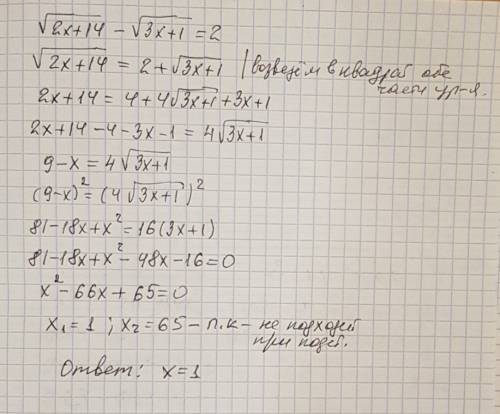 √2x+14 − √3x+1 = 2
√2x+14 = 2+√3x+1 | возведём в квадрат обе
части ур-я.
2x+14 = 4+4√3x+1 +3x+1
2x+14−4−3x−1 = 4√3x+1
9−x = 4√3x+1
(9−x)² = (4√3x+1)²
81−18x+x² = 16(3x+1)
81−18x+x²−48x−16=0
x²−66x+65=0
x₁=1 ; x₂=65 – п.к – не подходит
при подст.
Ответ: x=1